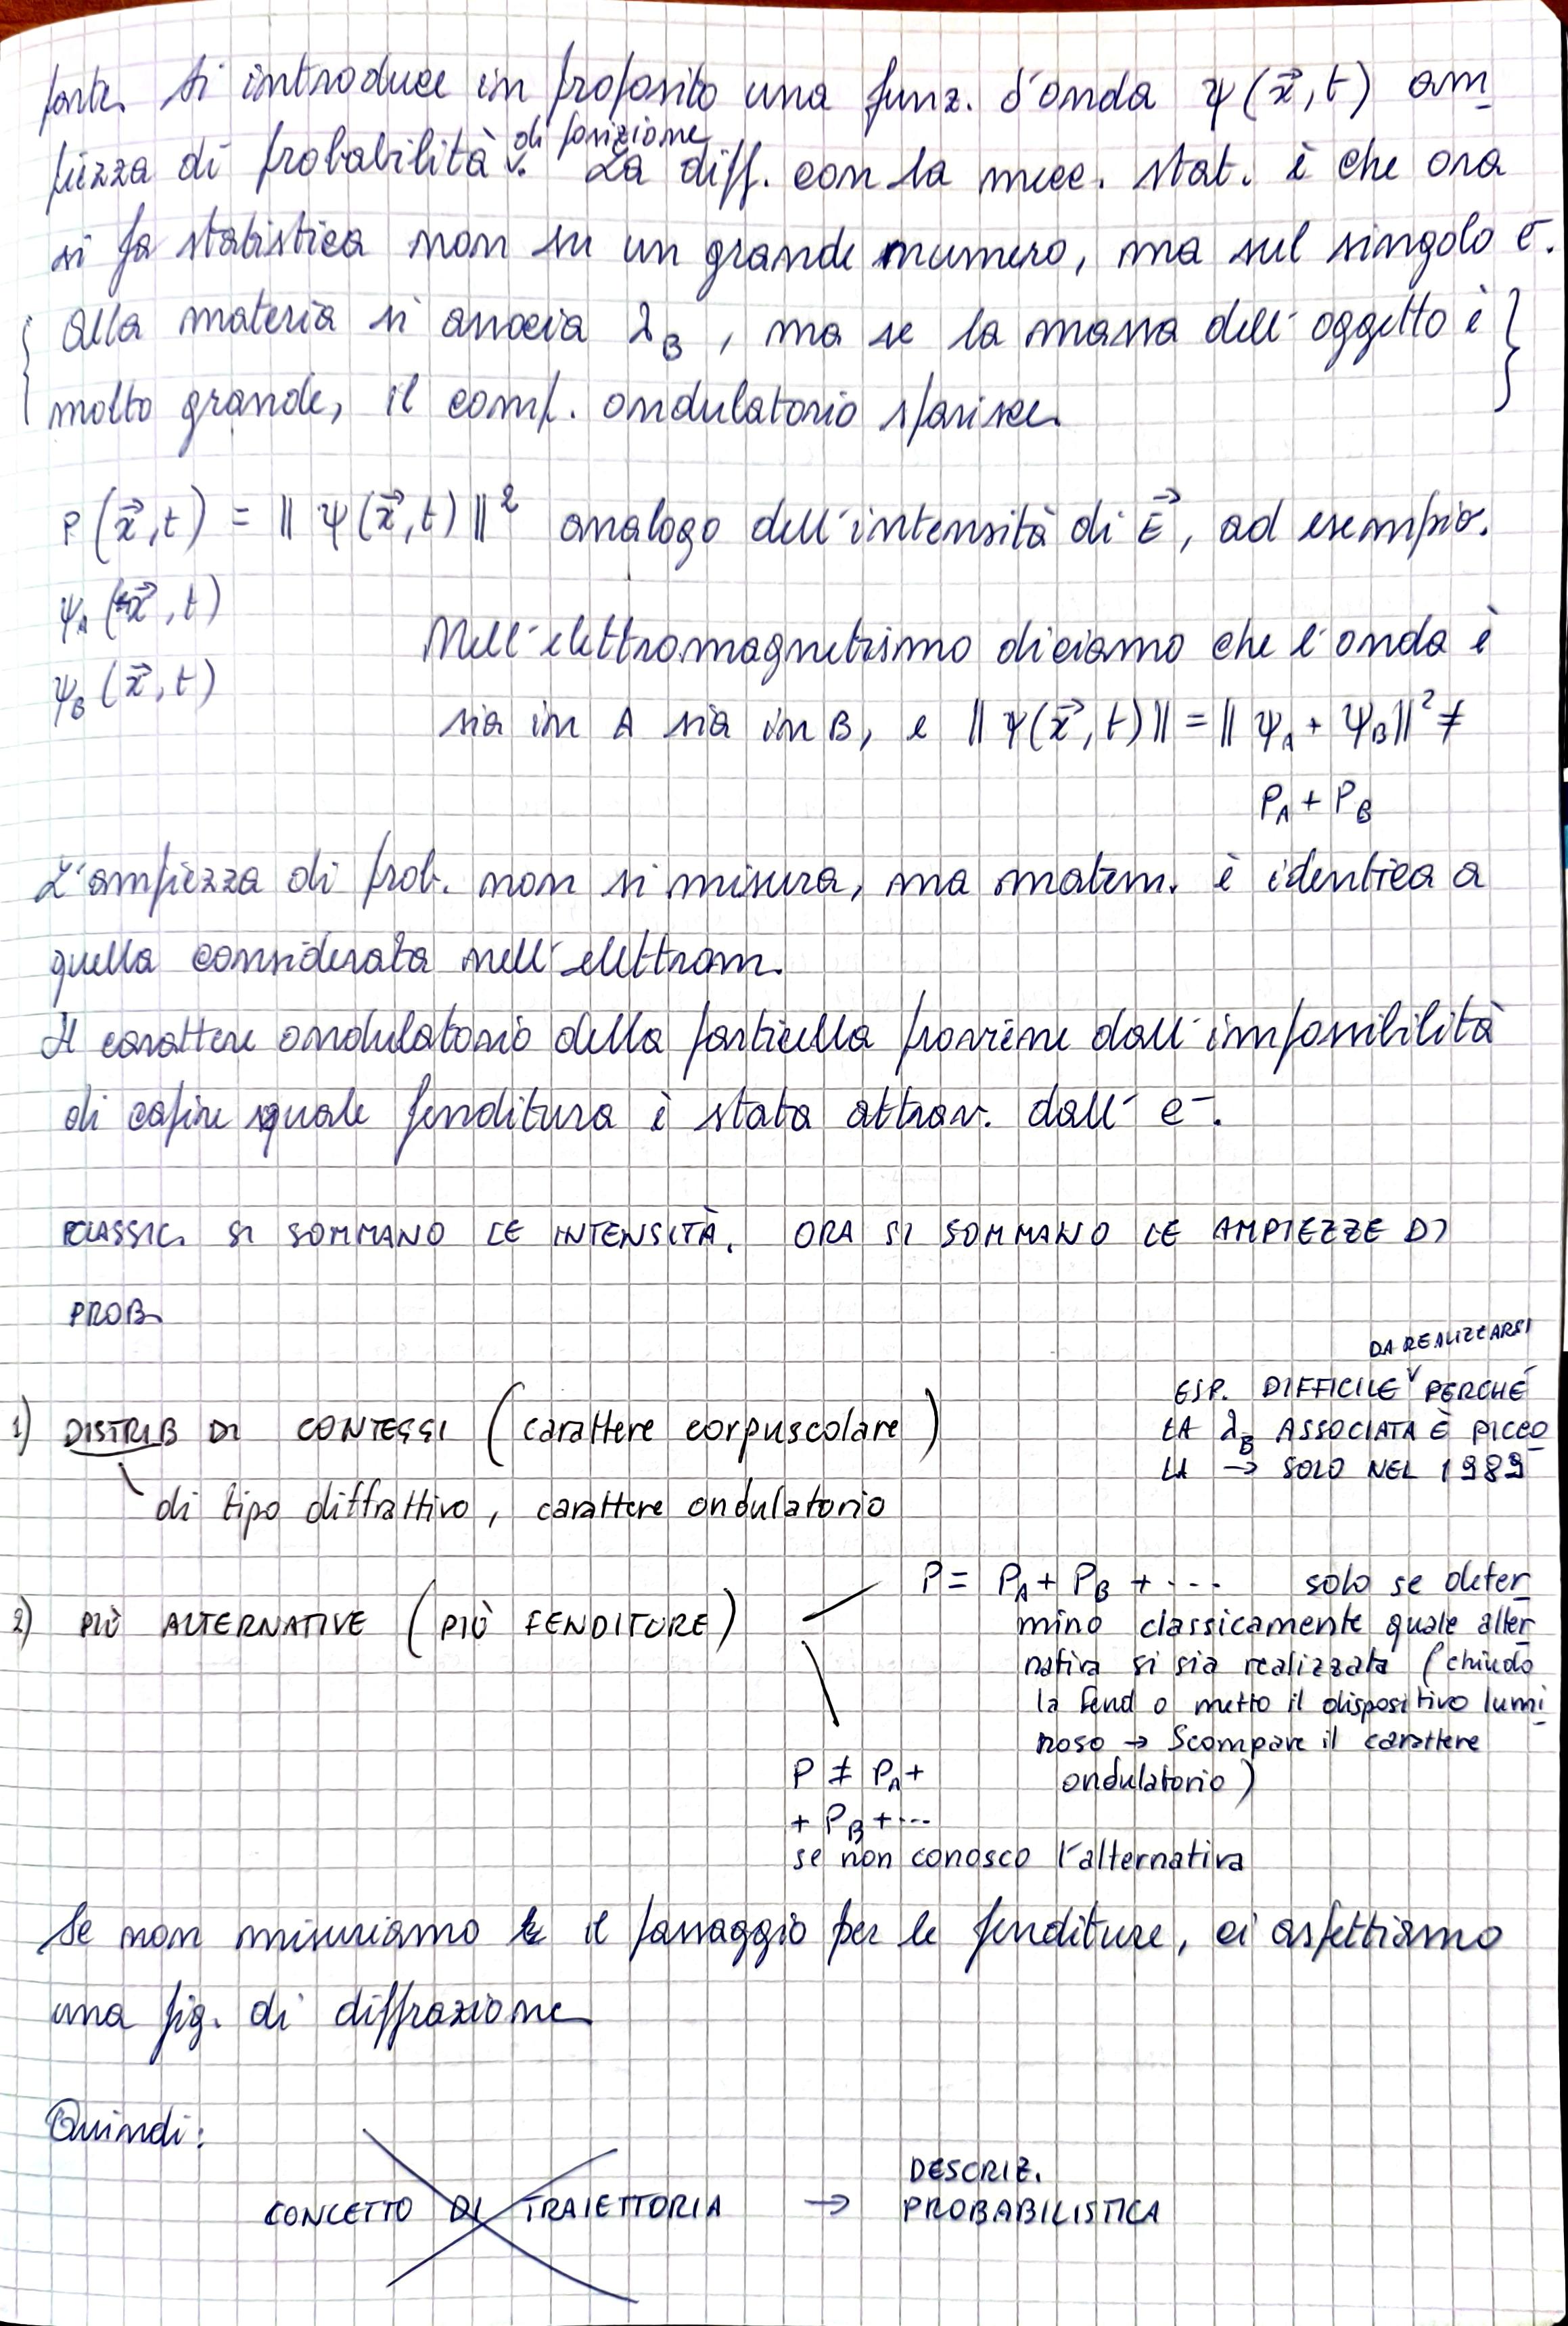 parte. Si introduce in proposito una funz. d'onda ψ(x⃗,t) am
piezza di probabilità di posizione. La diff. con la mecc. stat. è che ora
si fa statistica non su un grande numero, ma sul singolo e⁻.
{ Alla materia si associa λ_B, ma se la massa dell'oggetto è }
molto grande, il comp. ondulatorio sparisce.
P(x⃗,t) = ‖ψ(x⃗,t)‖² analogo dell'intensità di E⃗, ad esempio.
ψ_A(x⃗,t)
ψ_B(x⃗,t)
Nell'elettromagnetismo diciamo che l'onda è
sia in A sia in B, e ‖ψ(x⃗,t)‖ = ‖ψ_A + ψ_B‖² ≠
P_A + P_B
L'ampiezza di prob. non si misura, ma matem. è identica a
quella considerata nell'elettrom.
Il carattere ondulatorio della particella proviene dall'impossibilità
di capire quale fenditura è stata attrav. dall'e⁻.
CLASSIC. SI SOMMANO LE INTENSITÀ. ORA SI SOMMANO LE AMPIEZZE DI
PROB.
1) DISTRIB DI CONTEGGI (carattere corpuscolare)
di tipo diffrattivo, carattere ondulatorio
DA REALIZZARSI
ESP. DIFFICILE PERCHÉ
LA λ_B ASSOCIATA È PICCO
LA → SOLO NEL 1989
2) PIÙ ALTERNATIVE (PIÙ FENDITURE)
P = P_A + P_B + ... solo se deter
mino classicamente quale alter
nativa si sia realizzata (chiudo
la fend o metto il dispositivo lumi
noso → Scompare il carattere
ondulatorio)
P ≠ P_A +
+ P_B + ...
se non conosco l'alternativa
Se non misuriamo il passaggio per le fenditure, ci aspettiamo
una fig. di diffrazione
Quindi:
CONCETTO DI TRAIETTORIA → DESCRIZ.
PROBABILISTICA